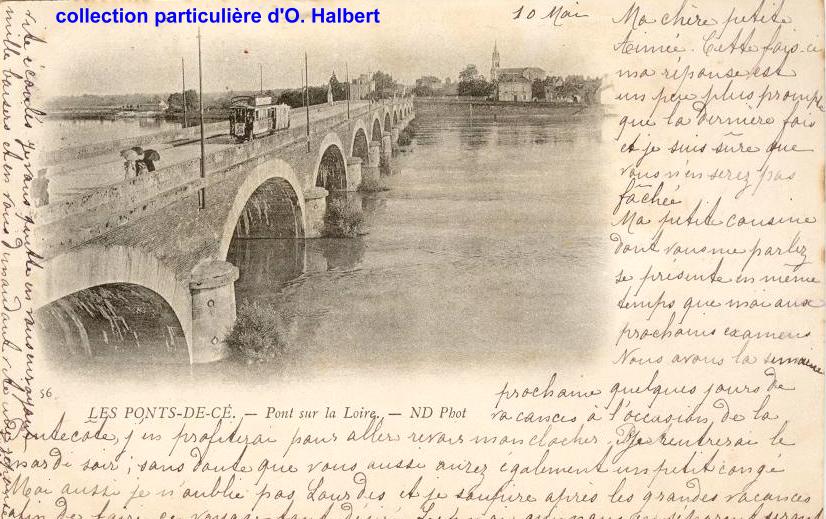 collection particulière d'O. Halbert
10 Mai
Ma chère petite
Aimée. Cette fois-ci
ma réponse est
un peu plus prompte
que la dernière fois
et je suis sûre que
vous n'en serez pas
fâchée
Ma petite cousine
dont vous me parlez
se présente en même
temps que moi aux
prochains examens
Nous avons la semaine
prochaine quelques jours de
vacances à l'occasion de la
Pentecôte, j'en profiterai pour aller revoir mon clocher. Je rentrerai le
mardi soir; sans doute que vous aussi aurez également un petit congé
Moi aussi je n'oublie pas Lourdes et je soupire après les grandes vacances
afin de faire ce voyage tant désiré
56
LES PONTS-DE-CÉ. — Pont sur la Loire. — ND Phot
je vous quitte en vous envoyant
mille baisers et en vous demandant vite